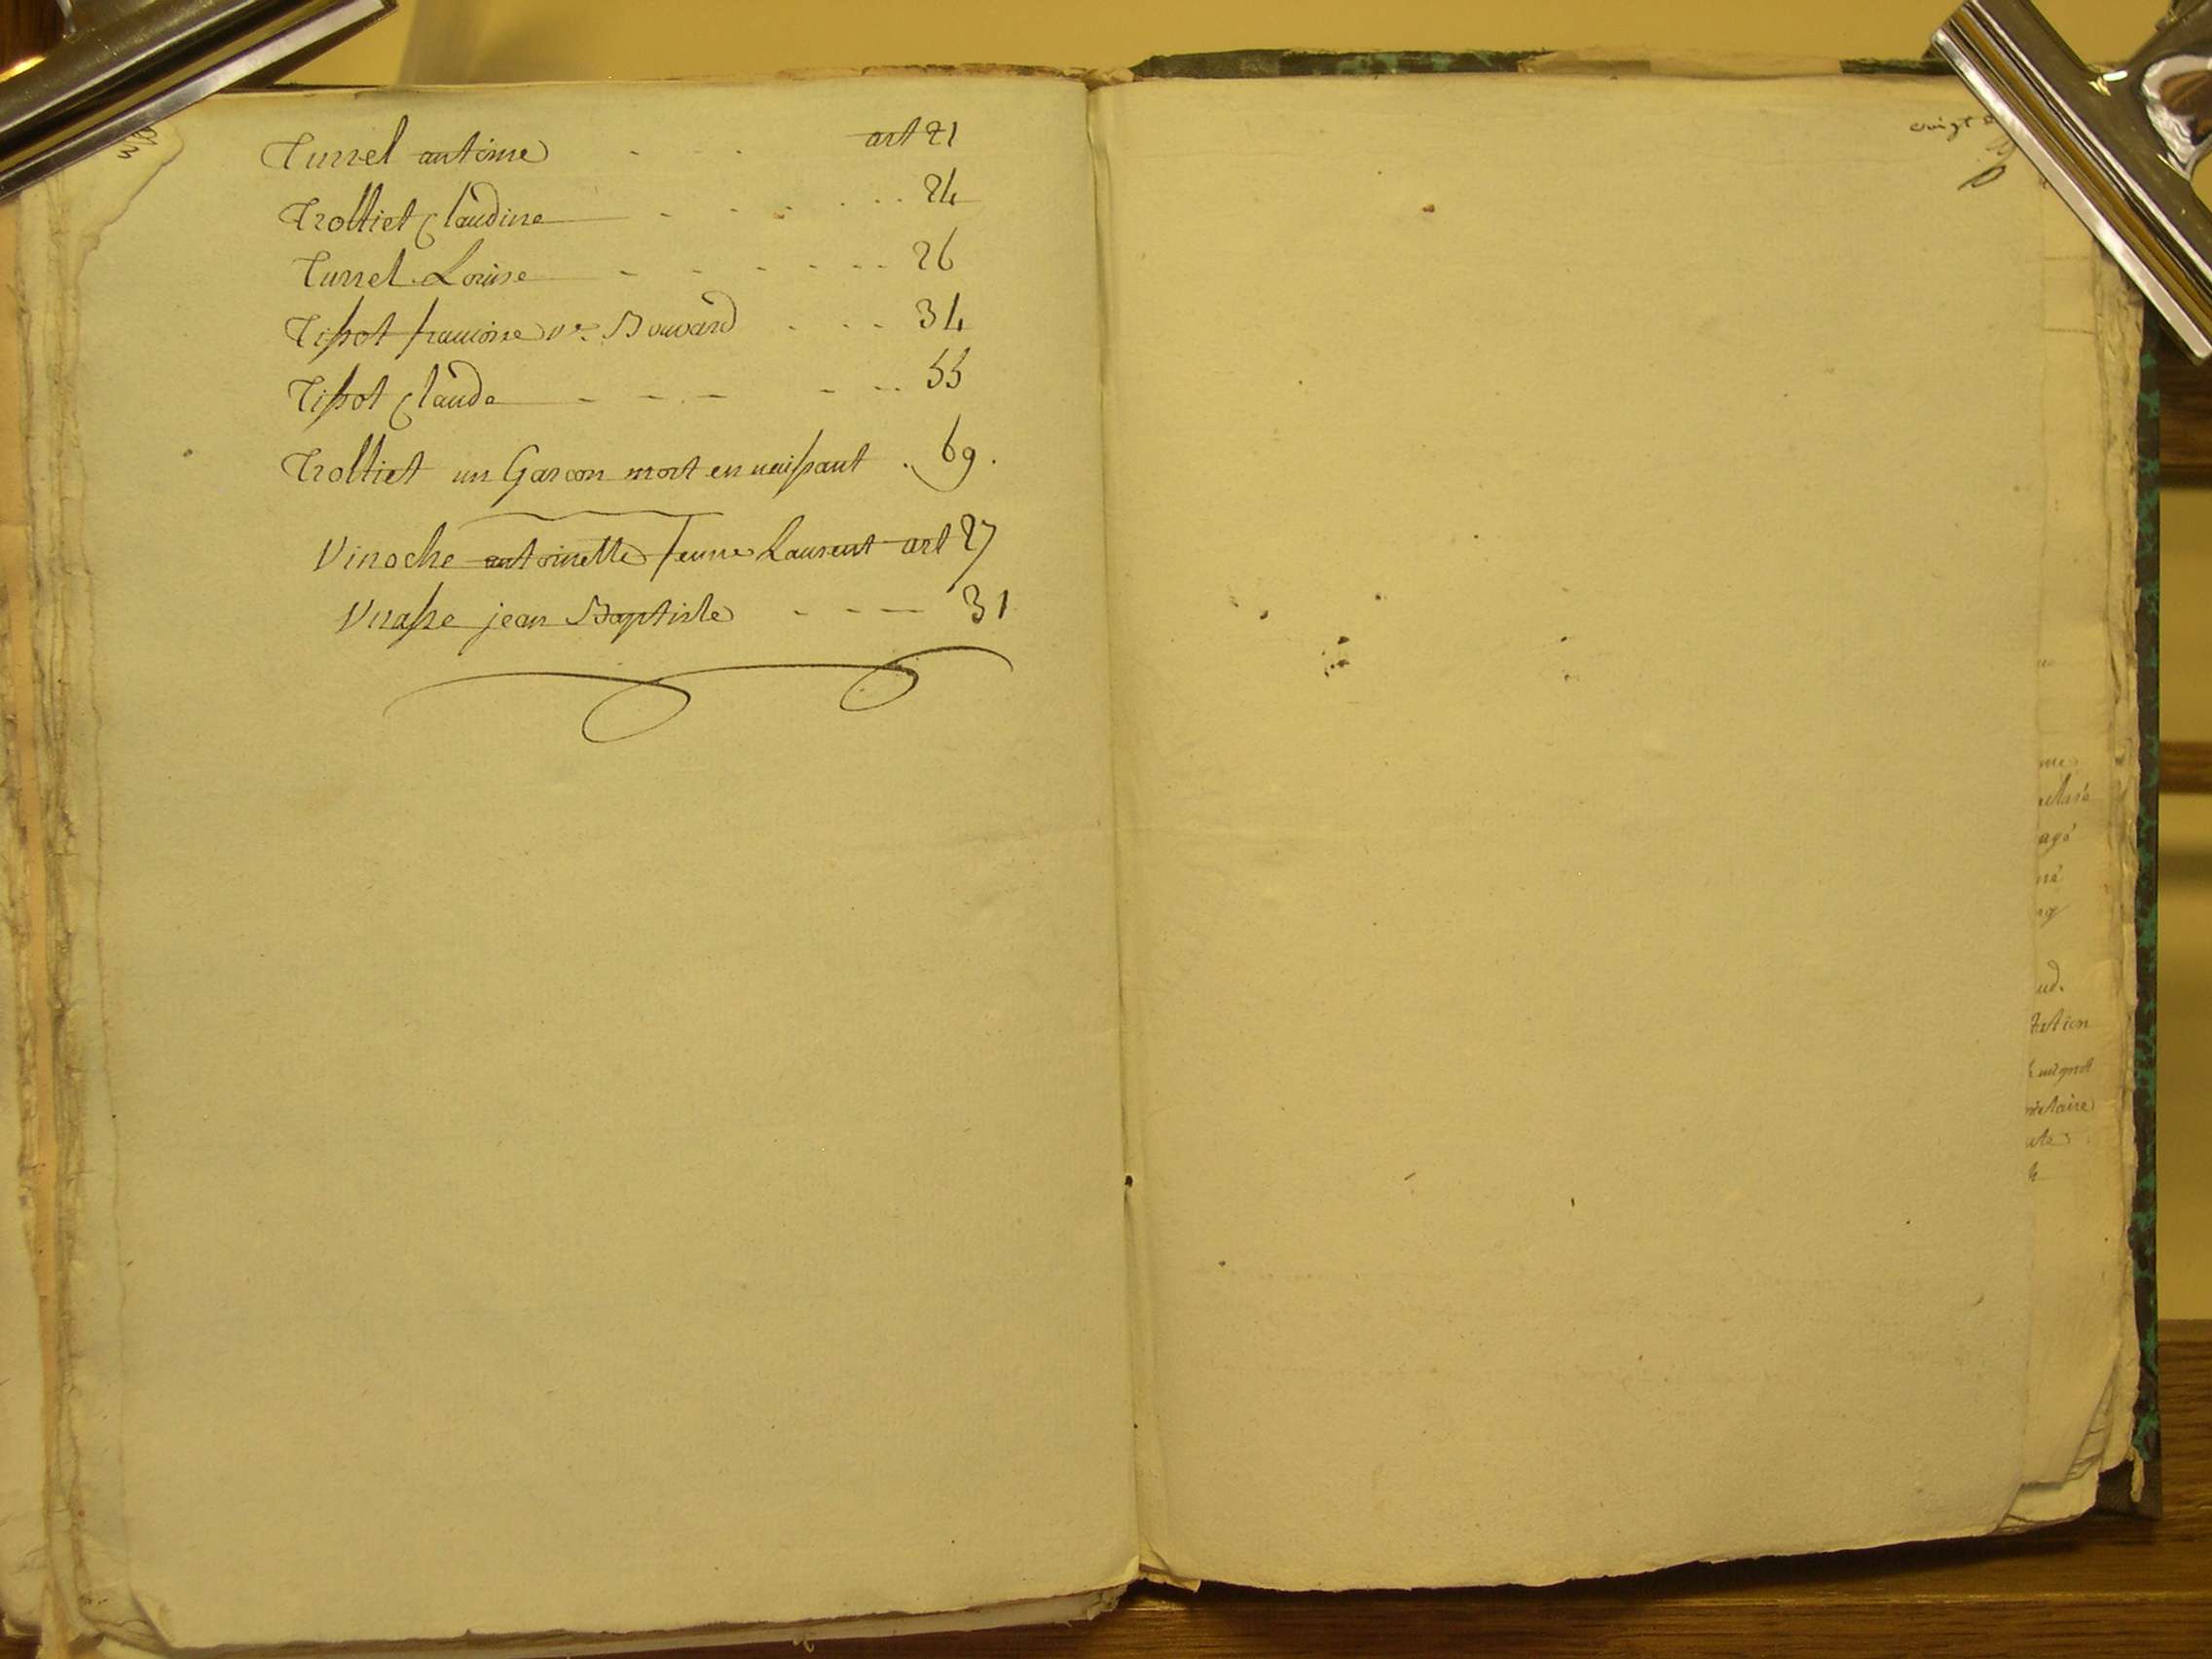 Turrel antoine - - - art 21
Trolliet Claudine - - - ... 24
Turrel Louise - - - - - - - 26
Tissot francoise ve. Bouvard - - - 34
Tissot Claude - - - - - - 55
Trolliet un Garcon mort en naissant . 69.
Vinoche antoinette femme Laurent art 27
jean Baptiste - - - 31